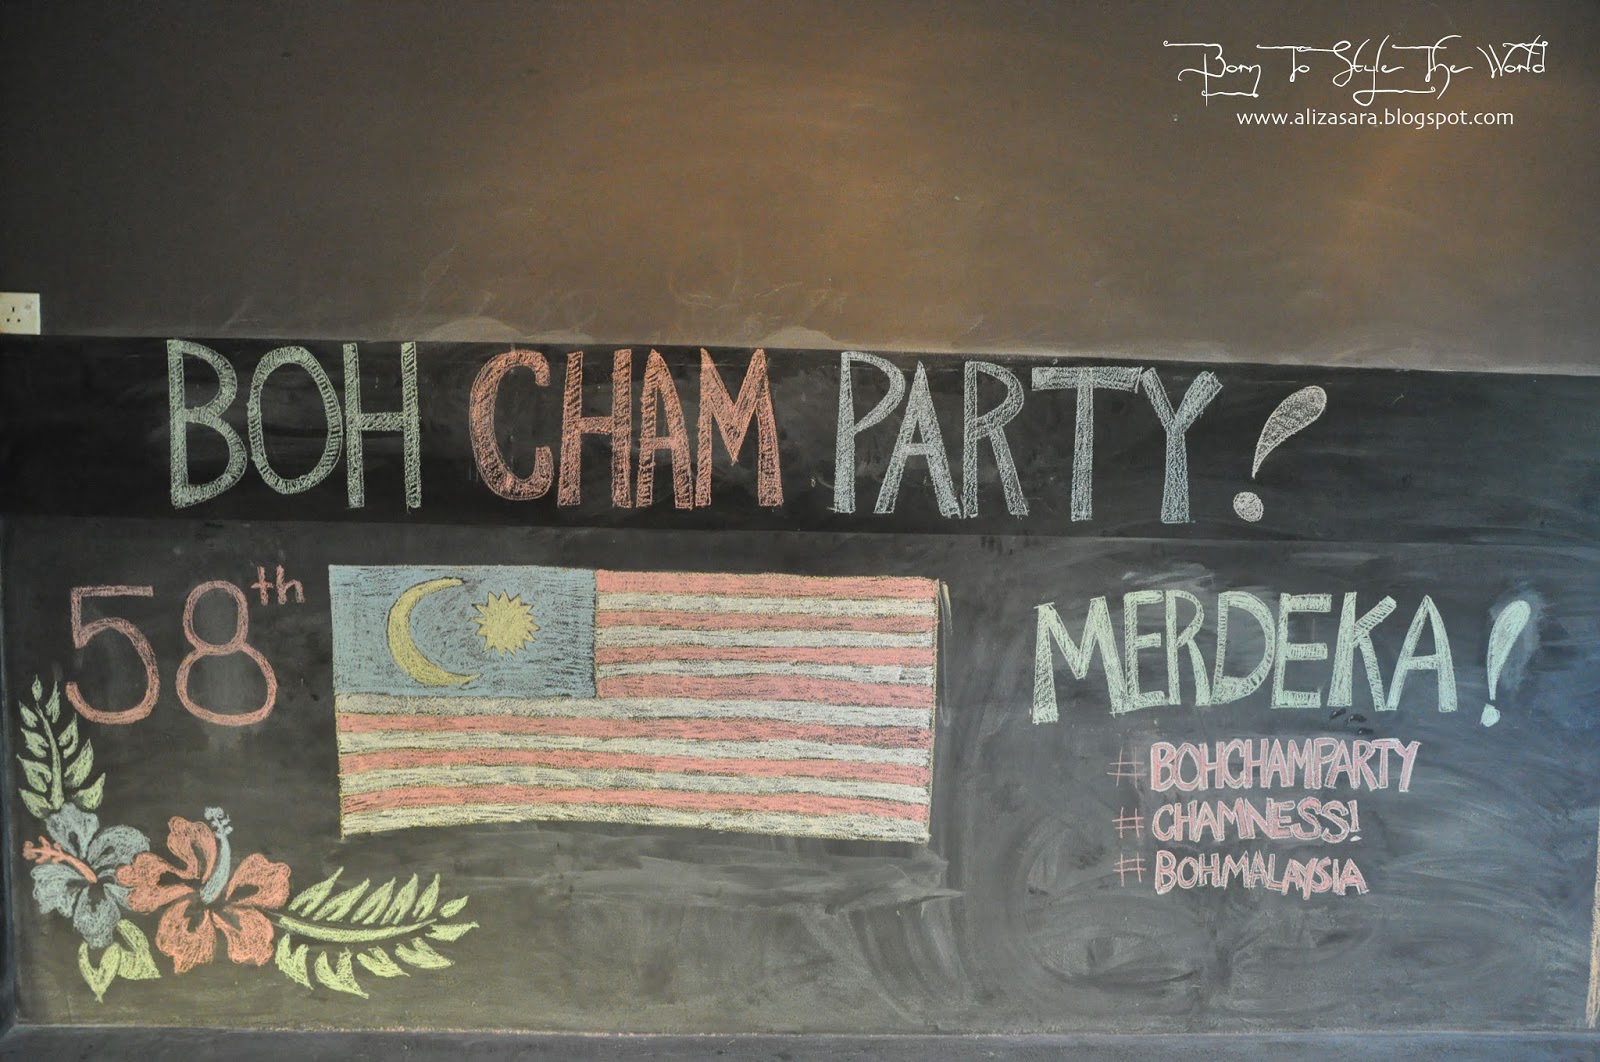 Born To Style The World
www.alizasara.blogspot.com
BOH CHAM PARTY!
58th
MERDEKA!
#BOHCHAMPARTY
#CHAMNESS!
#BOHMALAYSIA